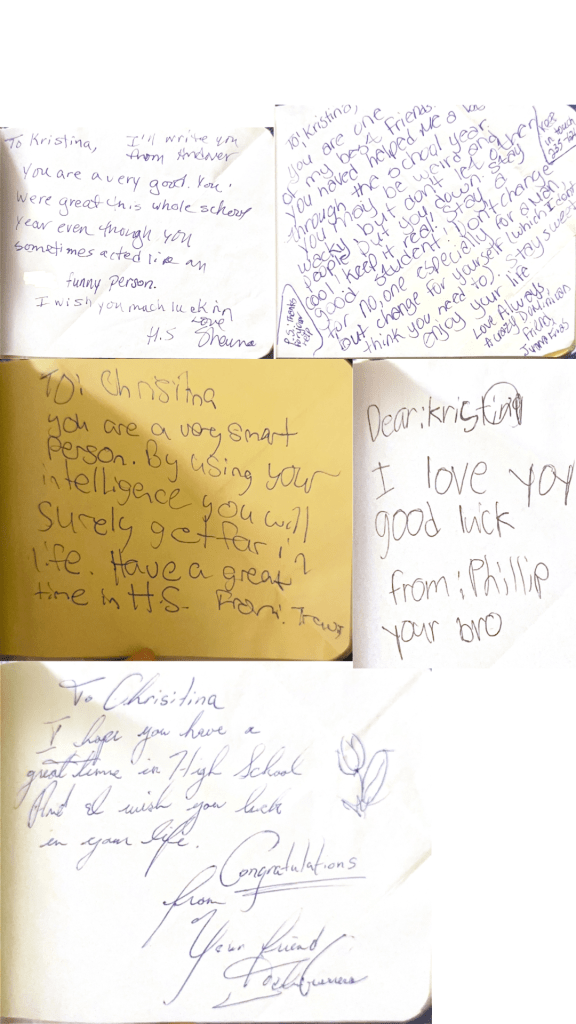 To Kristina, I'll write you
from Andover
You are a very good. You
were great this whole school
year even though you
sometimes acted like an
funny person.
I wish you much luck in
H.S Love
Shauna
To: Kristina,
you are one
of my best friends.
You haved helped me a
through the school year.
You may be weird and
wacky but don't let other
people put you down. Stay
cool, keep it real, stay a
good student. Don't change
for no one especially for a man
but change for yourself (which I don't
think you need to). Stay sweet
enjoy your life
Love Always
A crazy Dominican
Friend
keep
in touch
P.S. Thanks
for your
help
TO: Chrisitina
you are a very smart
Person. By using your
intelligence you will
surely get far in
life. Have a great
time in H.S. From:
Dear: kristina
I love yoy
good luck
from: Phillip
your bro
To Chrisitina
I hope you have a
great time in High School
And I wish you luck
in your life.
Congratulations
from
Your friend